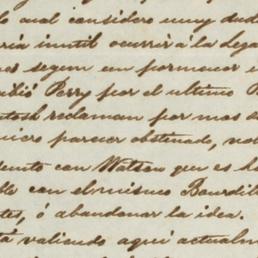 lo cual considero muy dud
ria inutil ocurrir á la Lega
segun un pormenor
Perry por el ultimo
tosh reclaman por mas de
parecer obstinado, no
con Watson que es h
con el mismo Bourdill
tes, ó abandonar la idea.
tá valiendo aqui actualm